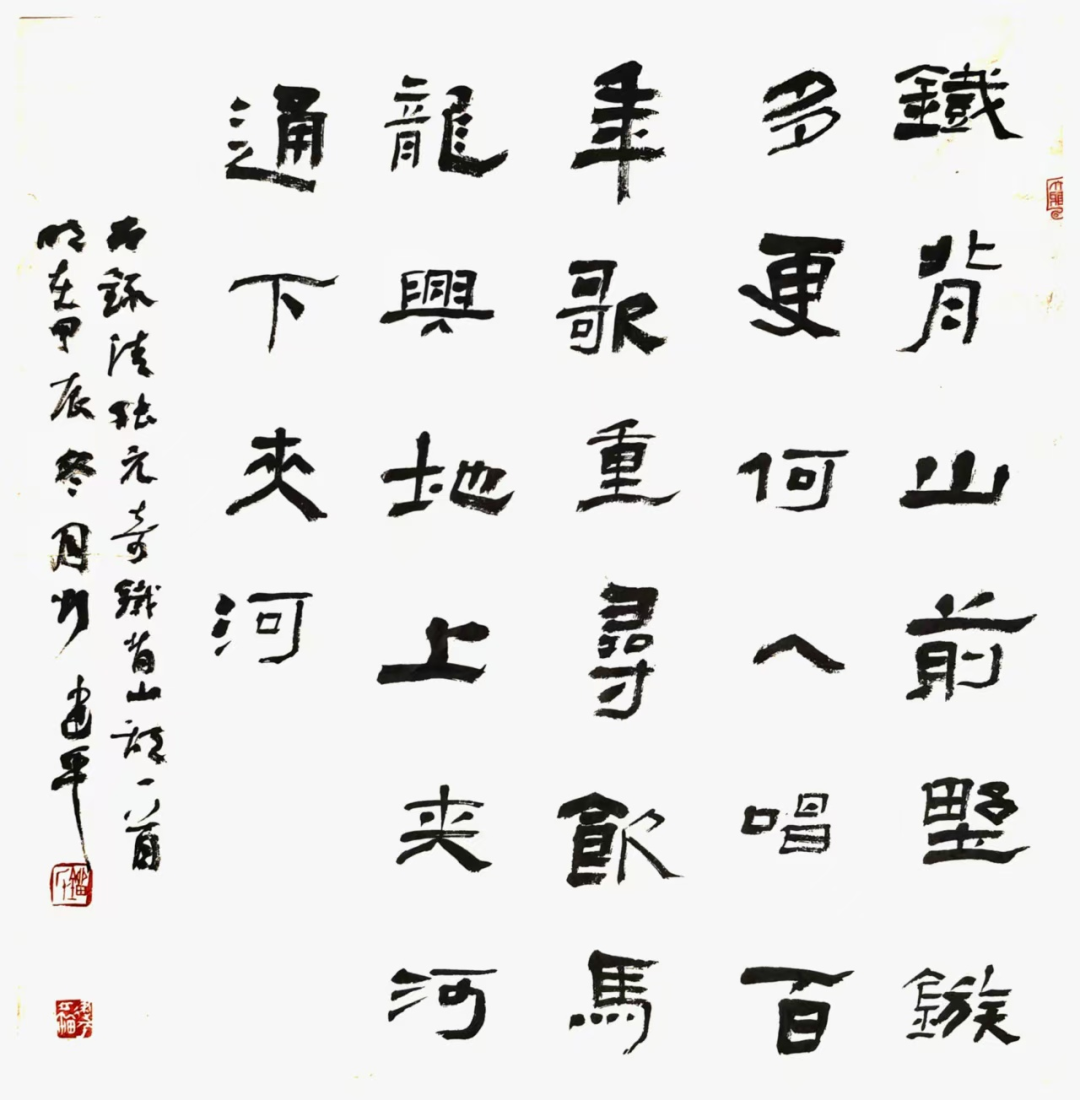 鐵背山前野鏃
多更何人唱百
年歌重尋飲馬
龍興地上夾河
通下夾河
右録清張元奇鐵背山詩一首
時在甲辰冬月 建平